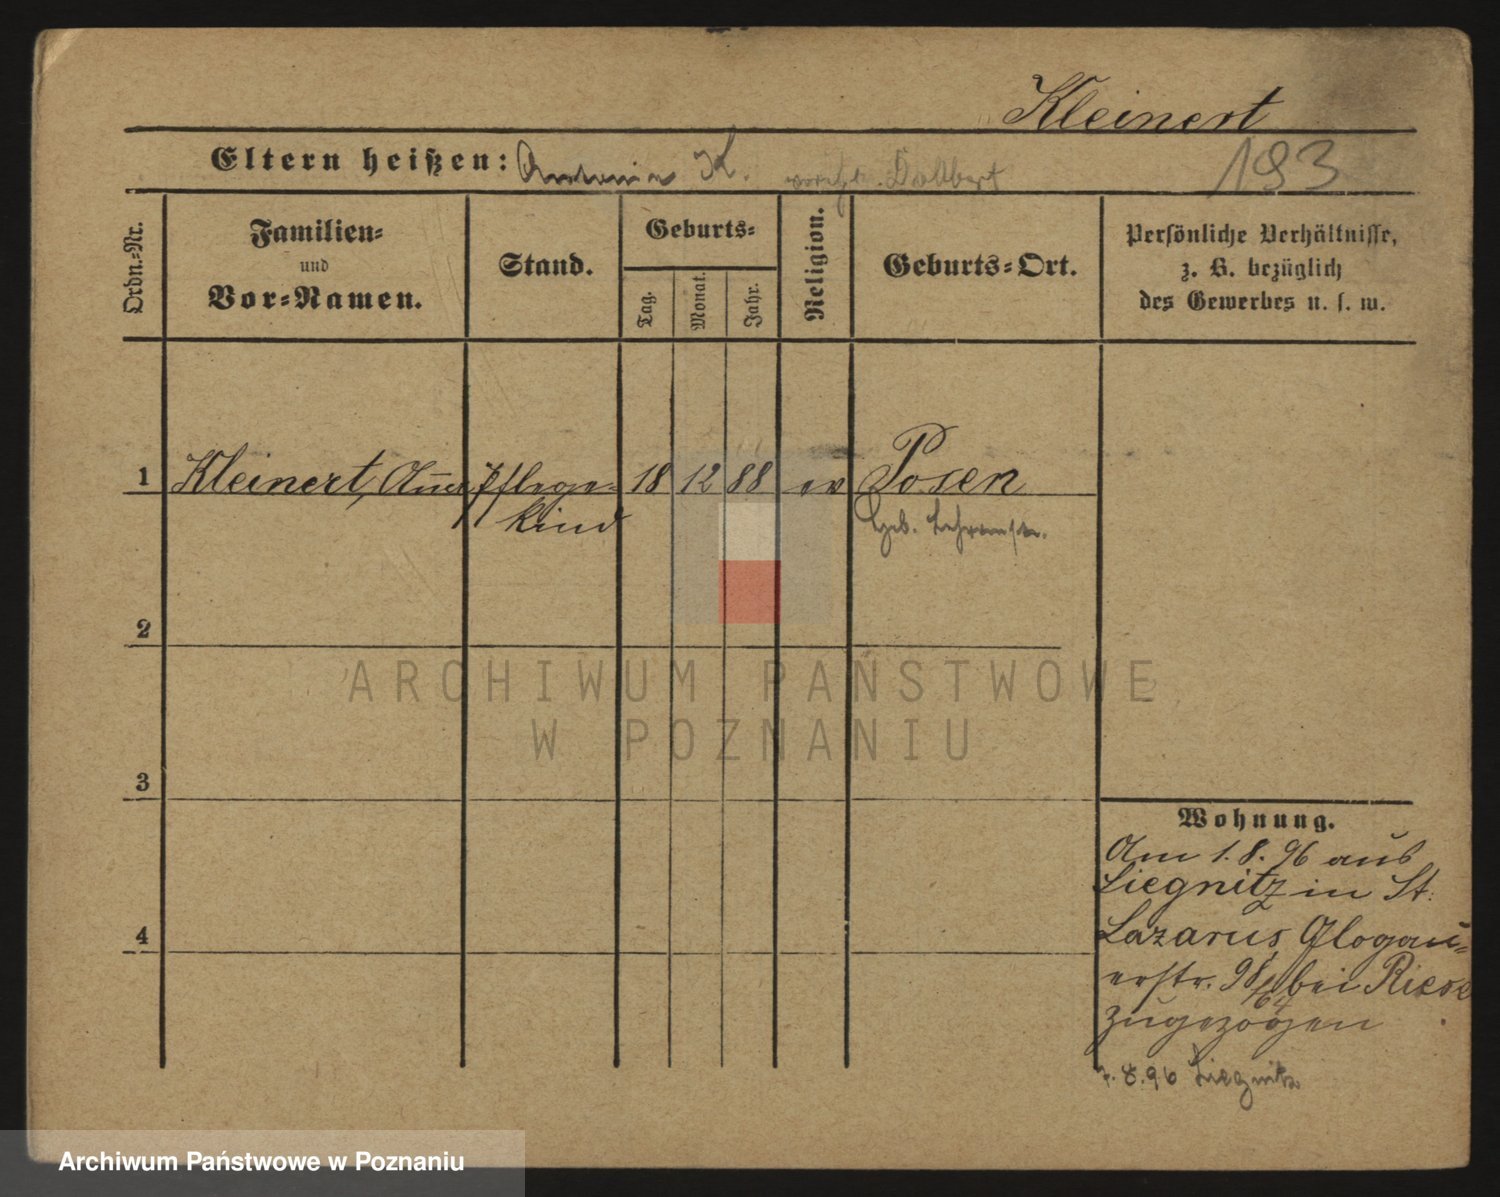 Kleinert
Eltern heißen: Antonie K.
193
Ordn.-Nr.
Familien-
und
Vor-Namen.
Stand.
Geburts-
Tag.
Monat.
Jahr.
Religion.
Geburts-Ort.
Persönliche Verhältnisse,
z. B. bezüglich
des Gewerbes u. s. w.
1 Kleinert, Anna Pflege- 18 12 88 ev Posen
kind
geb.
2
ARCHIWUM PAŃSTWOWE
W POZNANIU
3
Wohnung.
Am 1.8.96 aus
Liegnitz in St.
4
Lazarus, Glogau-
erstr. 98/64 bei Riese
zugezogen
7.8.96 Liegnitz
Archiwum Państwowe w Poznaniu